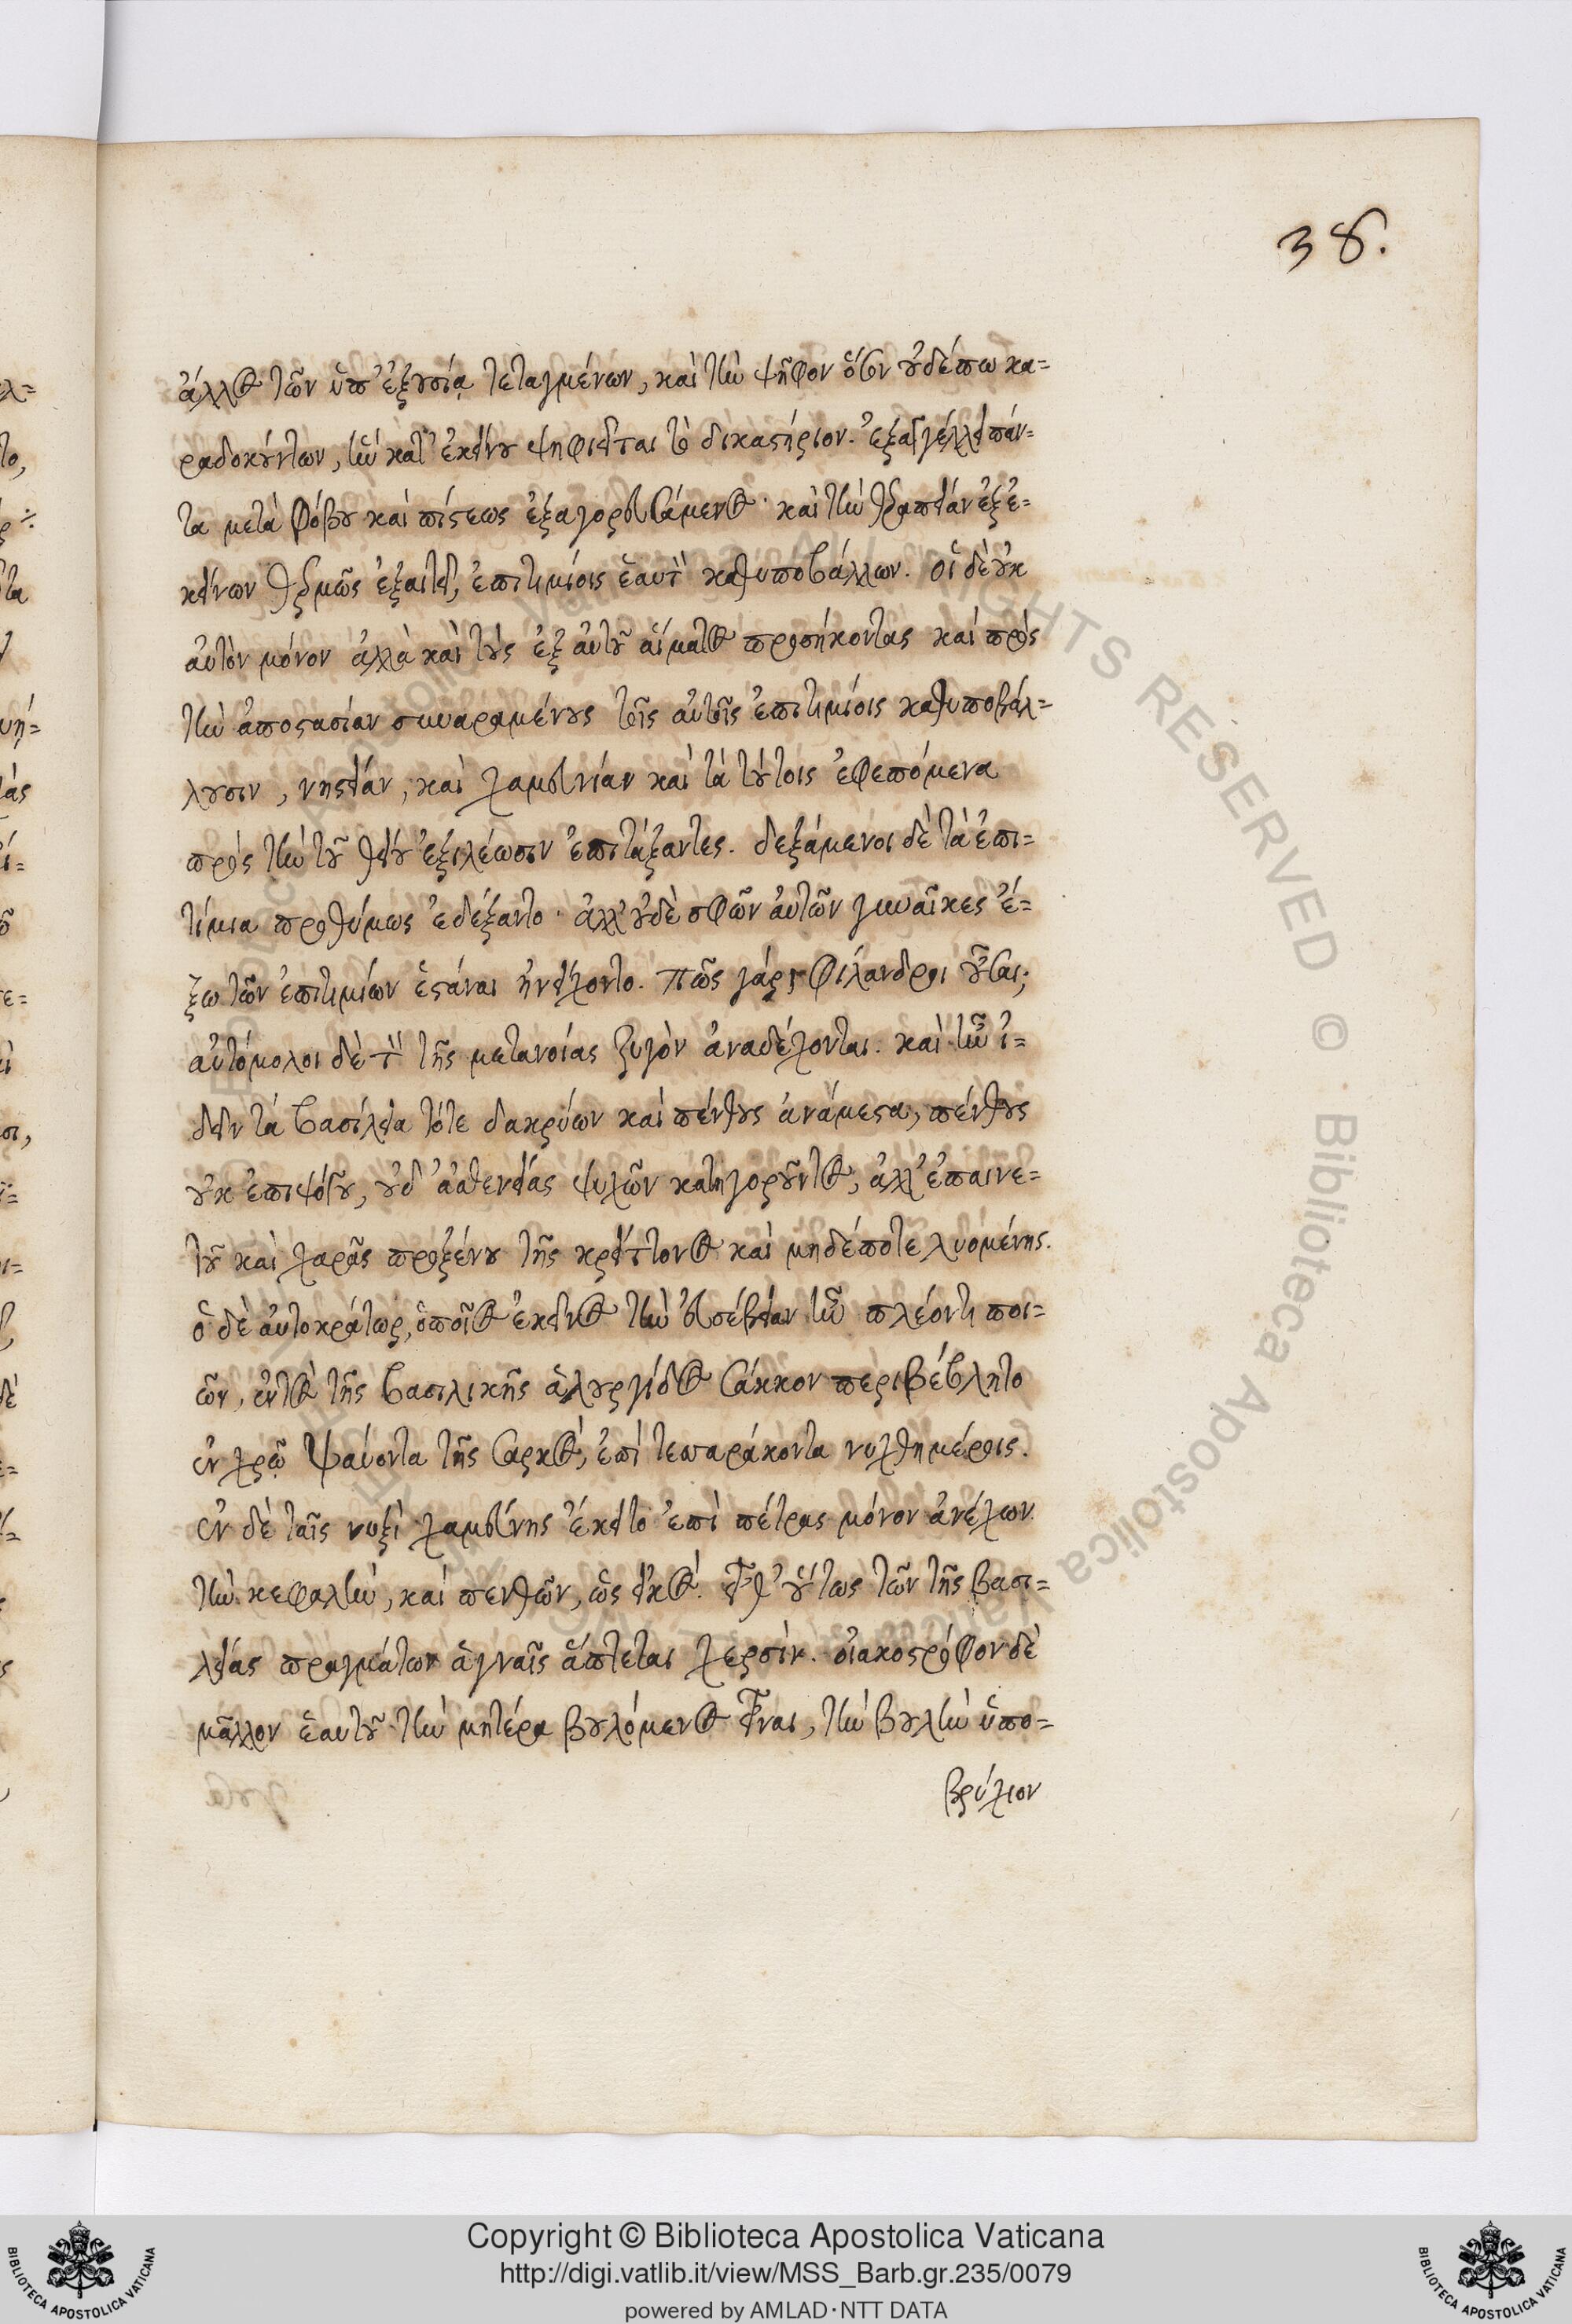 38.
ἄλλος τῶν ὑπ' ἐξουσίᾳ τεταγμένων, καὶ τὴν ψῆφον ὅσην οὐδέπω κα=
ραδοκούντων, ἣν κατ' ἐκείνου ψηφιεῖται τὸ δικαστήριον. ἐξαγγέλλει πάν=
τα μετὰ φόβου καὶ πίστεως ἐξαγορευσάμενος· καὶ τὴν θεραπείαν ἐξ ἐ=
κείνων θερμῶς ἐξαιτεῖ, ἐπιτιμίοις ἑαυτὸν καθυποβάλλων. οἱ δὲ οὐκ
αὐτὸν μόνον ἀλλὰ καὶ τοὺς ἐξ αὐτοῦ αἵματος προσήκοντας καὶ πρὸς
τὴν ἀποστασίαν συναραμένους τοῖς αὐτοῖς ἐπιτιμίοις καθυποβάλ=
λουσιν, νηστείαν, καὶ χαμευνίαν καὶ τὰ τούτοις ἐφεπόμενα
πρὸς τὴν τοῦ θείου ἐξιλέωσιν ἐπιτάξαντες. δεξάμενοι δὲ τὰ ἐπι=
τίμια προθύμως ἐδέξαντο· ἀλλ' οὐδὲ σφῶν αὐτῶν γυναῖκες ἔ=
ξω τῶν ἐπιτιμίων ἑστάναι ἠνείχοντο. πῶς γάρ, φίλανδροι οὖσαι;
αὐτόμολοι δὲ τὸν τῆς μετανοίας ζυγὸν ἀναδέχονται. καὶ ἦν ἰ=
δεῖν τὰ βασίλεια τότε δακρύων καὶ πένθους ἀνάμεστα, πένθους
οὐκ ἐπιψόγου, οὐδ' ἀσθενείας ψυχῶν κατηγοροῦντος, ἀλλ' ἐπαινε=
τοῦ καὶ χαρᾶς προξένου τῆς κρείττονος καὶ μηδέποτε λυομένης.
ὁ δὲ αὐτοκράτωρ, ὁποῖος ἐκεῖνος τὴν εὐσέβειαν ἦν πλέον τι ποι=
ῶν, ἐντὸς τῆς βασιλικῆς ἁλουργίδος σάκκον περιβέβλητο
ἐν χρῷ ψαύοντα τῆς σαρκός, ἐπὶ τεσσαράκοντα νυχθημέροις.
ἐν δὲ ταῖς νυξὶ χαμεύνης ἔκειτο ἐπὶ πέτρας μόνον ἀνέχων
τὴν κεφαλήν, καὶ πενθῶν, ὡς εἰκός. εἶθ' οὕτως τῶν τῆς βασι=
λείας πραγμάτων ἁγναῖς ἅπτεται χερσίν. οἰακοστρόφον δὲ
μᾶλλον ἑαυτοῦ τὴν μητέρα βουλόμενος εἶναι, τὴν βουλὴν ὑπο=
βρύχιον
Copyright © Biblioteca Apostolica Vaticana
http://digi.vatlib.it/view/MSS_Barb.gr.235/0079
powered by AMLAD·NTT DATA